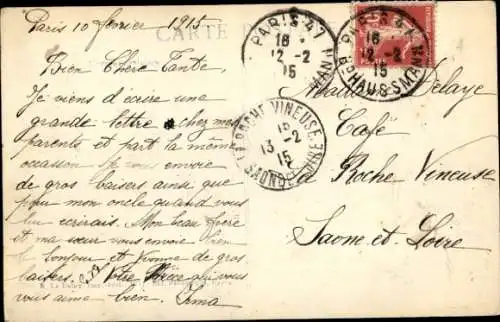 Paris 10 février 1915
Bien Chère Tante,
Je viens d'écrire une
grande lettre chez mes
parents et part la même
occasion Je vous envoie
de gros baisers ainsi que
pour mon oncle quand vous
lui écrirais. Mon beau frère
et ma sœur vous envoie bien
le bonjour et Yvonne de gros
baisers. Votre Nièce qui vous
vous aime bien. Irma
CARTE
PARIS 47
16
12-2
15
PARIS 47
16
12-2
15
Bd HAUSSMANN
LA ROCHE VINEUSE
13-2
15
SAONE-ET-LOIRE
Madame Delaye
Café
La Roche Vineuse
Saone et Loire